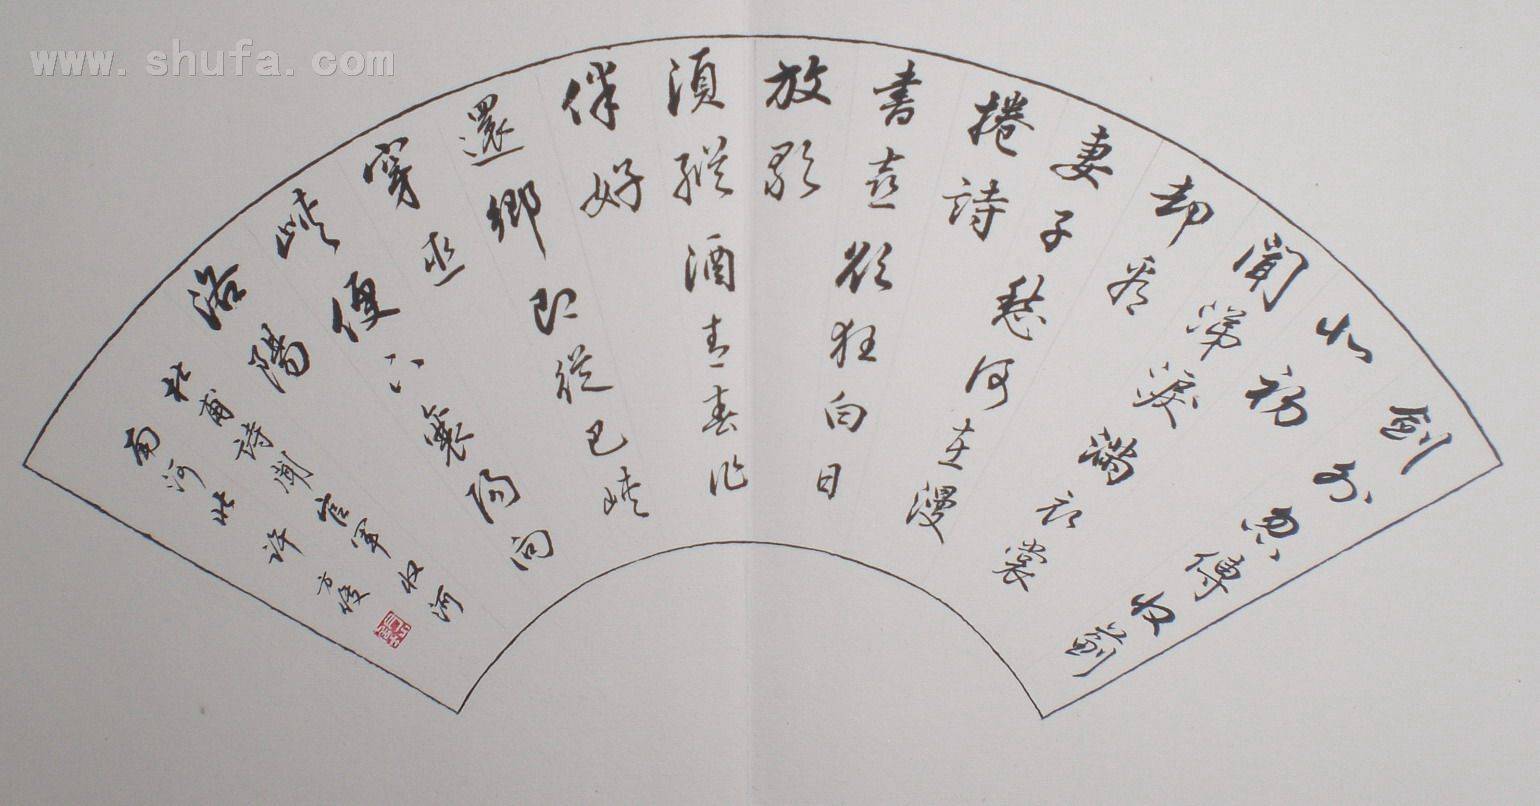 www.shufa.com
劍外忽傳收薊
北初
聞涕淚滿衣裳
却看
妻子愁何在漫
捲詩
書喜欲狂白日
放歌
須縱酒青春作
伴好
還鄉即從巴峽
穿巫
峽便下襄陽向
洛陽
杜甫詩聞官軍收河
南河北 許方俊